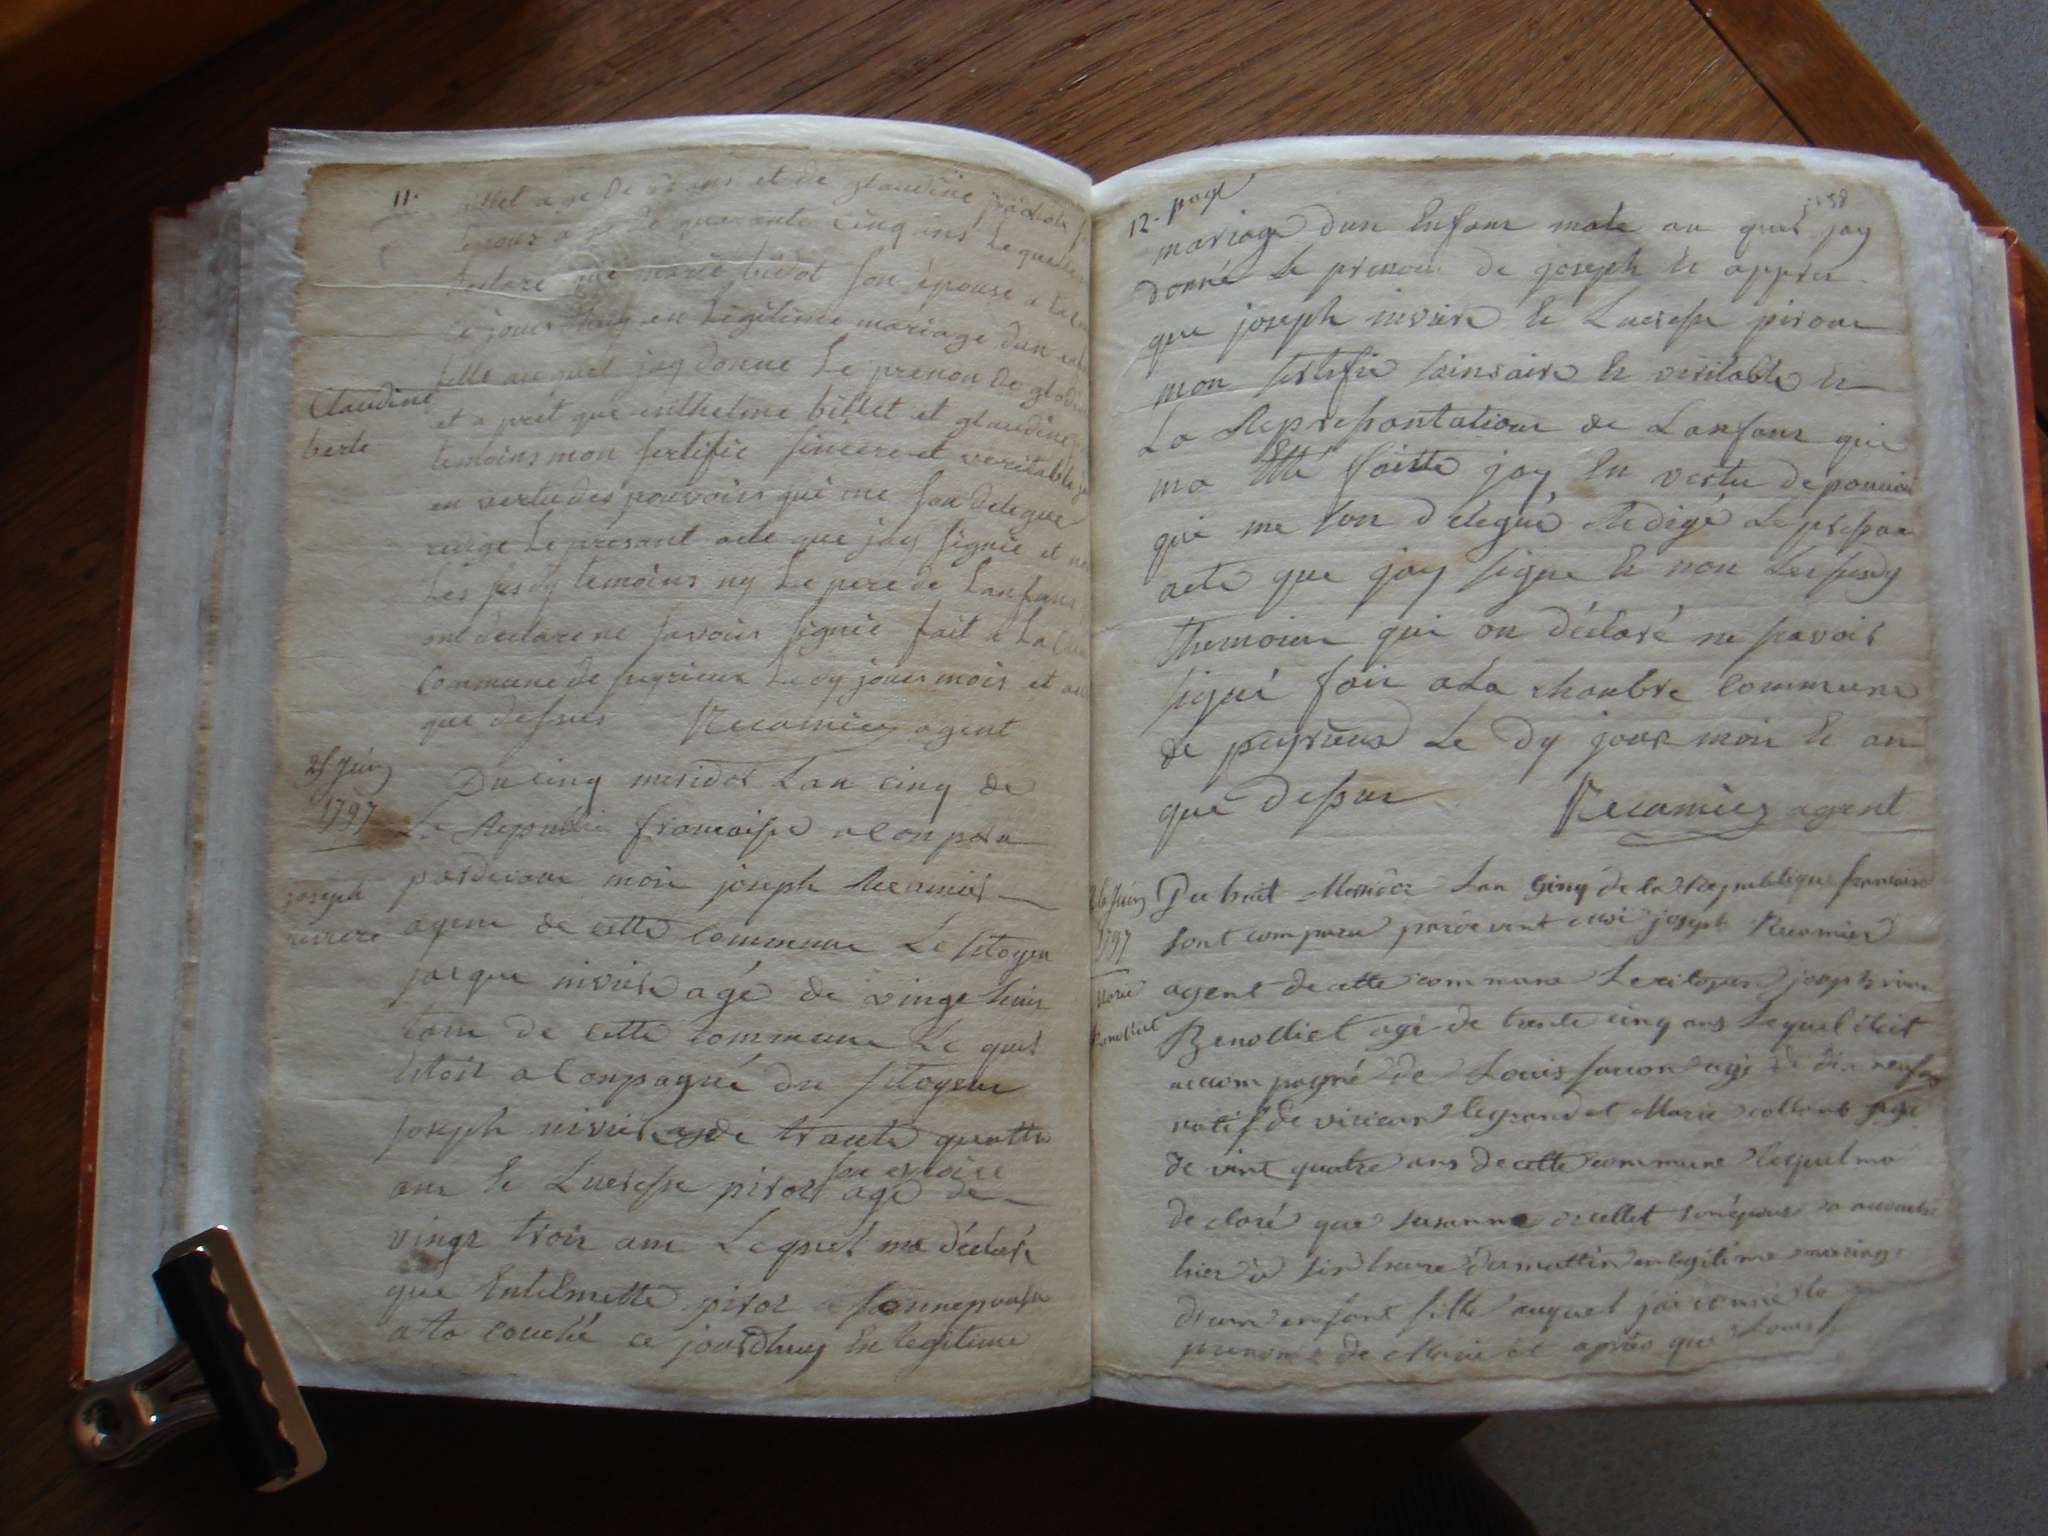 11.
billet age de 60 ans et de glaudine
epouse age de quarante cinq ans Lequel
declare que marie bildot son épouse a
ce jourdhuy en Légitime mariage dun
fille auquel jay donne Le prenon de
Claudine
berle
et a pret que anthelme billet et glaudine
temoins mon sertifie sincere et veritable
en vertu des pouvoirs qui me son delegue
redige Le presant acte que jay signie et
Les susdy temoins ny Le pere de Lanfans
ont déclare ne savoir signie fait a La
Commune de peyrieux Le dy jour mois et
que dessus Recamier agent
25 juin
1797
Du cinq mesidor Lan cinq de
La Republi francaisse a Conparu
pardevant moi joseph Recamier
joseph
niviere
agent de cette commune Le sitoyen
jacque nivier agé de vingt huit
lans de cette commune Le quel
Etoit aConpagné du sitoyen
joseph nivier age de trante quattre
ans Et Lucresse piroz son epouse age de
vingt trois ans Lequel ma déclaré
que Entelmette piroz sonnepouse
ata couché ce jourdhuy En legitime
12. page
58
mariage dun Enfans male au quel jay
donné Le prenom de joseph Et appres
que joseph niviere Et Lucresse piroz
mon sertifie sainsaire Et veritable Et
La Represantation de Lanfans qui
ma Etté faitte jay En vertu de pouvoir
qui me son délegué Redigé Le present
acte que jay signe Et non Les susdy
themoins qui on déclaré ne savoir
signé fait a La chanbre commune
de peyrieux Le dy jour mois Et an
que dessus Recamier agent
26 juin
1797
Du huit Messidor Lan Cinq de la Republique francaise
sont comparu pardevent moi joseph Recamier
Marie
Benodiet
agent de cette commune Le citoyen joseph
Benodiet agé de trente cinq ans Lequel étoit
accompagné de Louis age de dix neuf ans
natif de virieux legrand et Marie age
de vint quatre ans de cette commune lequel ma
declaré que Susanne son épouse a
hier à six heure du mattin en legitime mariage
dun enfant fille auquel jai donné le
prenom de Marie et après que Louis